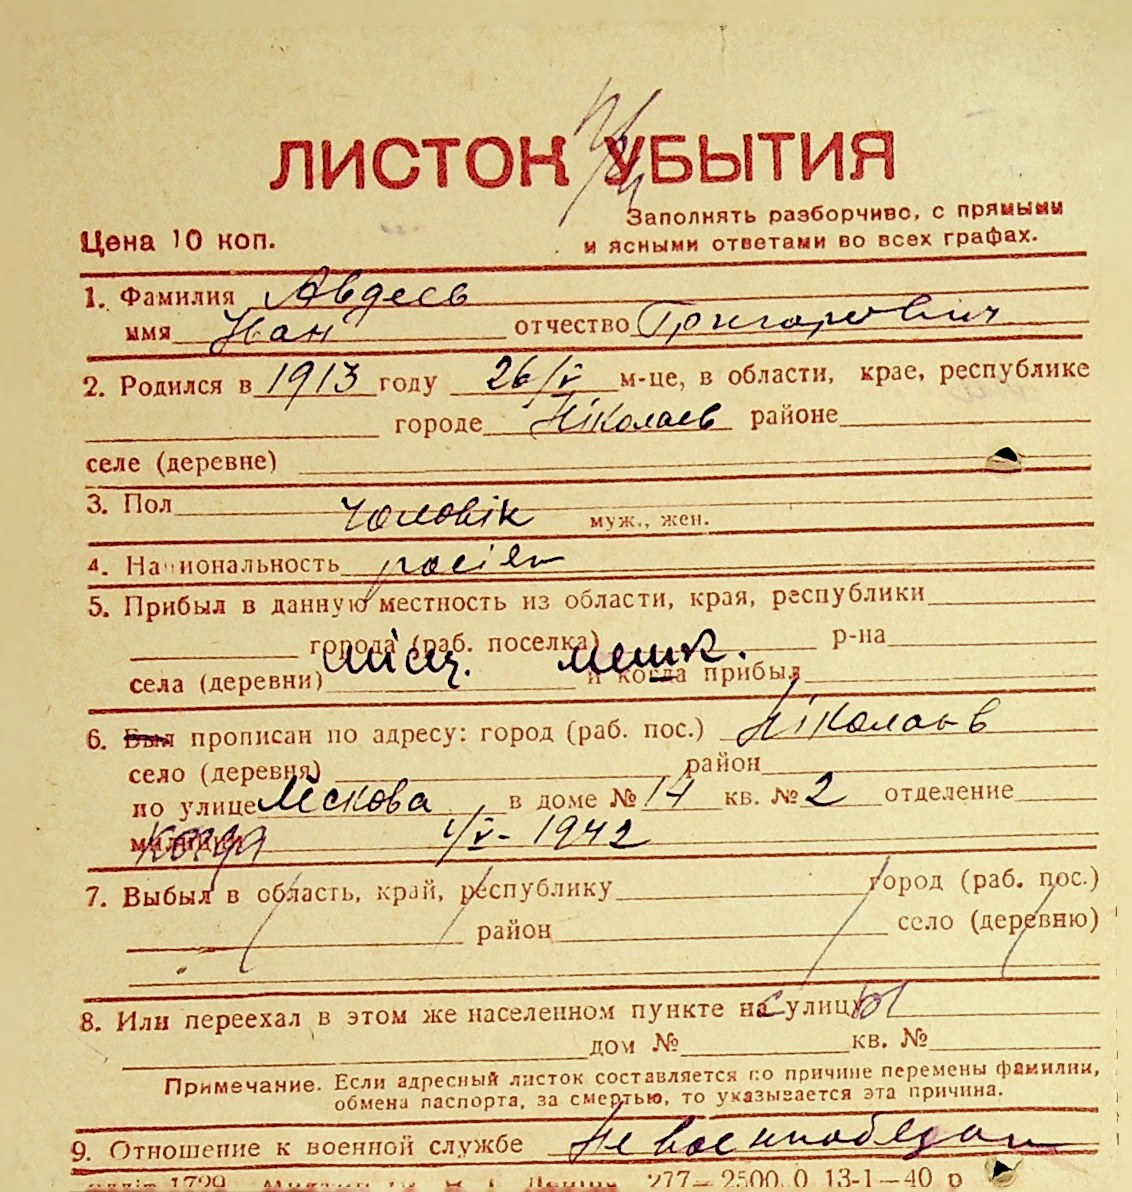 ЛИСТОК УБЫТИЯ
Цена 10 коп.
Заполнять разборчиво, с прямыми
и ясными ответами во всех графах.
1. Фамилия Авдеев
имя Иван отчество Григорович
2. Родился в 1913 году 26/V м-це, в области, крае, республике
городе Ніколаев районе
селе (деревне)
3. Пол чоловік муж., жен.
4. Национальность
5. Прибыл в данную местность из области, края, республики
города (раб. поселка) р-на
місц. мешк.
села (деревни) и когда прибыл
6. Был прописан по адресу: город (раб. пос.) Ніколаев
село (деревня) район
по улице Лєскова в доме № 14 кв. № 2 отделение
милиции когда 1/V - 1942
7. Выбыл в область, край, республику город (раб. пос.)
район село (деревню)
8. Или переехал в этом же населенном пункте на с улицы
дом № кв. №
Примечание. Если адресный листок составляется по причине перемены фамилии,
обмена паспорта, за смертью, то указывается эта причина.
9. Отношение к военной службе Не военнообязан
1729 277—2500.0 13-1—40 р